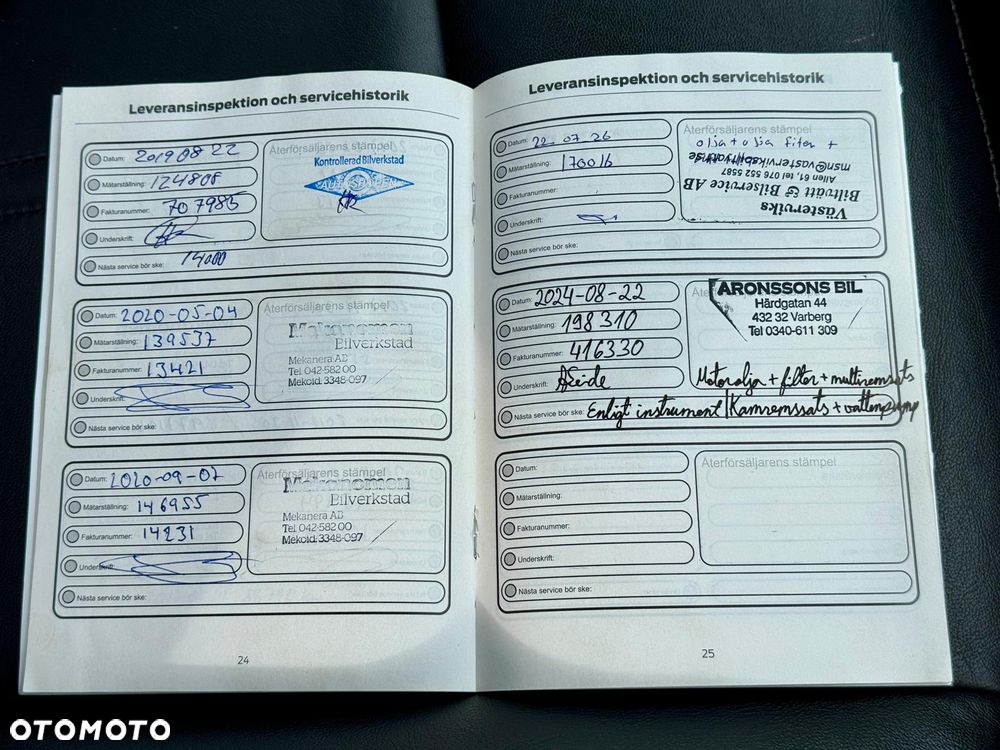 Leveransinspektion och servicehistorik
Datum: 2019 08 22
Mätarställning: 124808
Fakturanummer: 707985
Underskrift:
Nästa service bör ske: 14000
Återförsäljarens stämpel
Kontrollerad Bilverkstad
Datum: 2020-05-04
Mätarställning: 139537
Fakturanummer: 13421
Underskrift:
Nästa service bör ske:
Återförsäljarens stämpel
Mekonomen
Bilverkstad
Mekanera AB
Tel 042-582 00
Mekoid: 3348-097
Datum: 2020-09-02
Mätarställning: 146955
Fakturanummer: 14231
Underskrift:
Nästa service bör ske:
Återförsäljarens stämpel
Mekonomen
Bilverkstad
Mekanera AB
Tel 042-582 00
Mekoid: 3348-097
24
Leveransinspektion och servicehistorik
Datum: 22-07-26
Mätarställning: 170016
Fakturanummer:
Underskrift:
Nästa service bör ske:
Återförsäljarens stämpel
olja + olja filter +
Västerviks
Biltvätt & Bilservice AB
Allen 61, tel 076 552 5587
Datum: 2024-08-22
Mätarställning: 198310
Fakturanummer: 416330
Underskrift: ASeide
Nästa service bör ske: Enligt instrument / Kamremssats + vattenpump
ARONSSONS BIL
Hårdgatan 44
432 32 Varberg
Tel 0340-611 309
Motorolja + filter + multiremsats
Datum:
Mätarställning:
Fakturanummer:
Underskrift:
Nästa service bör ske:
Återförsäljarens stämpel
25
OTOMOTO